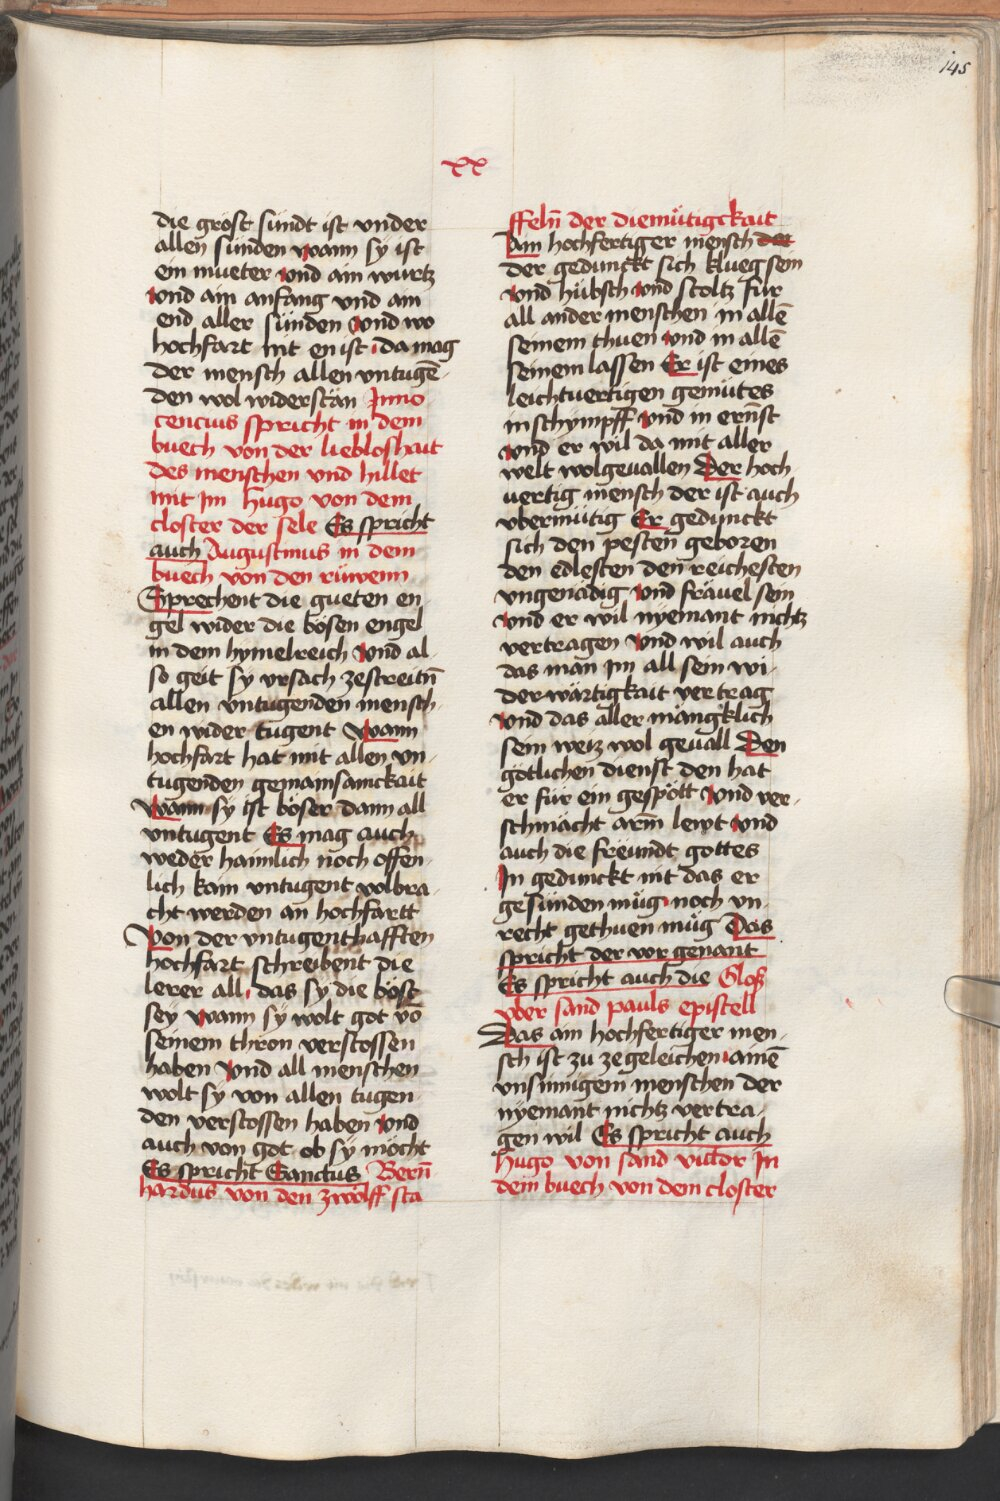 145
xx
die gröst sündt ist vnder
allen sünden wann sy ist
ein mueter vnd ain wurtz
vnd ain anfang vnd ain
end aller sünden vnd wo
hochfart nit en ist da mag
der mensch allen vntugē
den wol widerstän Inno
cencius spricht in dem
buech von der liebloshait
des menschen vnd hillet
mit im hugo von dem
closter der sele Es spricht
auch Augustinus in dem
buech von den rüwenn
Sprechent die gueten en
gel wider die bösen engel
in dem hymelreich vnd al-
so geit sy vrsach ze streitn̄
allen vntugenden mensch
en wider tugent wann
hochfart hat mit allen vn
tugenden gemainsamckait
wann sy ist böser dann all
vntugent Es mag auch
weder haimlich noch offen-
lich kain vntugent volbra-
cht werden an hochfartt
Von der vntugenthafften
hochfart schreibent die
lerer all das sy die böst
sey wann sy wolt got vō
seinem thron verstossen
haben vnd all menschen
wolt sy von allen tugen
den verstossen haben vnd
auch von got ob sy möcht
Es spricht Sanctus Bern̄
hardus von den zwölff sta
ffeln̄ der diemütigckait
Ain hochfertiger mensch
der gedunckt sich klueg sein
vnd hübsch vnd stoltz für
all ander menschen in allē
seinem thuen vnd in allē
seinem lassen Er ist eines
leichtuertigen gemütes
in schympff vnd in ern̄st
vnd er wil da mit aller
welt wolgeuallen Der hoch
uertig mensch der ist auch
vbermütig Er gedunckt
sich den pesten geboren
den edlesten den reichesten
vngenädig vnd fräuel sein
vnd er wil nyemant nichtz
vertragen vnd wil auch
das man im all sein wi-
derwärtigkait vertrag
vnd das aller mängklich
sein weiz wol geuall Den
götlichen dienst den hat
er für ein gespött vnd ver-
schmächt arm lewt vnd
auch die freündt gottes
In gedunckt nit das er
gesünden müg noch vn-
recht gethuen müg Das
spricht der vor genant
Es spricht auch die Glos
vber sand pauls epistell
Das ain hochfertiger men-
sch ist zu zegeleichen ainē
vnsinnigem menschen der
nyemant nichtz vertra-
gen wil Es spricht auch
hugo von sand victor In
dem buech von dem closter